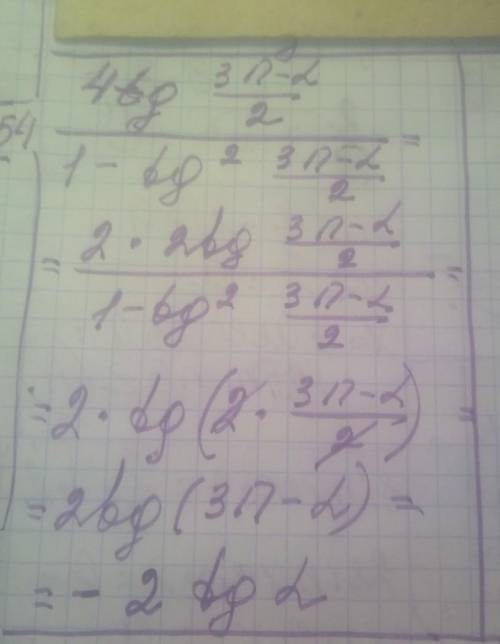 54
4tg 3π-α
2
=
1 - tg² 3π-α
2
= 2 · 2tg 3π-α
2
=
1 - tg² 3π-α
2
= 2 · tg(2 · 3π-α
2) =
= 2tg(3π-α) =
= - 2 tg α